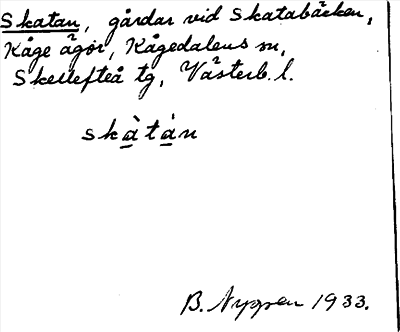 Skatan, gårdar vid Skatabäcken,
Kåge ägor, Kågedalens sn,
Skellefteå tg, Västerb. l.
skàtàn
B. Nygren 1933.